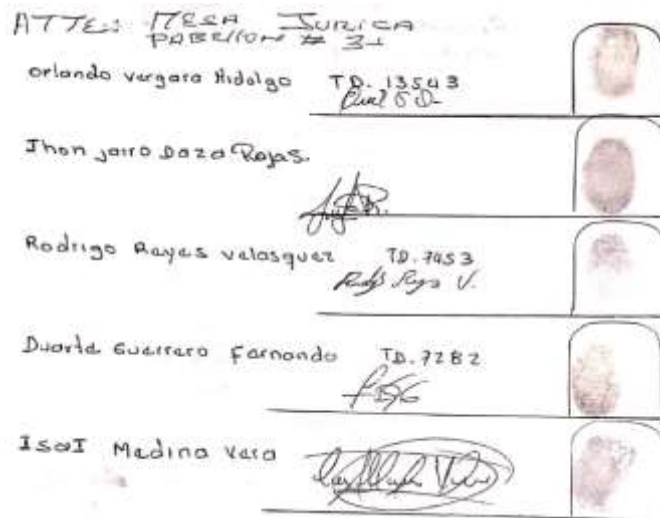 ATTE: MESA JURICA
PABELLON # 31
Orlando vergara Hidalgo TD. 13543
Jhon jairo Daza Rojas.
Rodrigo Reyes velasquez TD. 7453
Rodrigo Reyes V.
Duarte Guerrero Fernando TD. 7282
IsaI Medina Vera